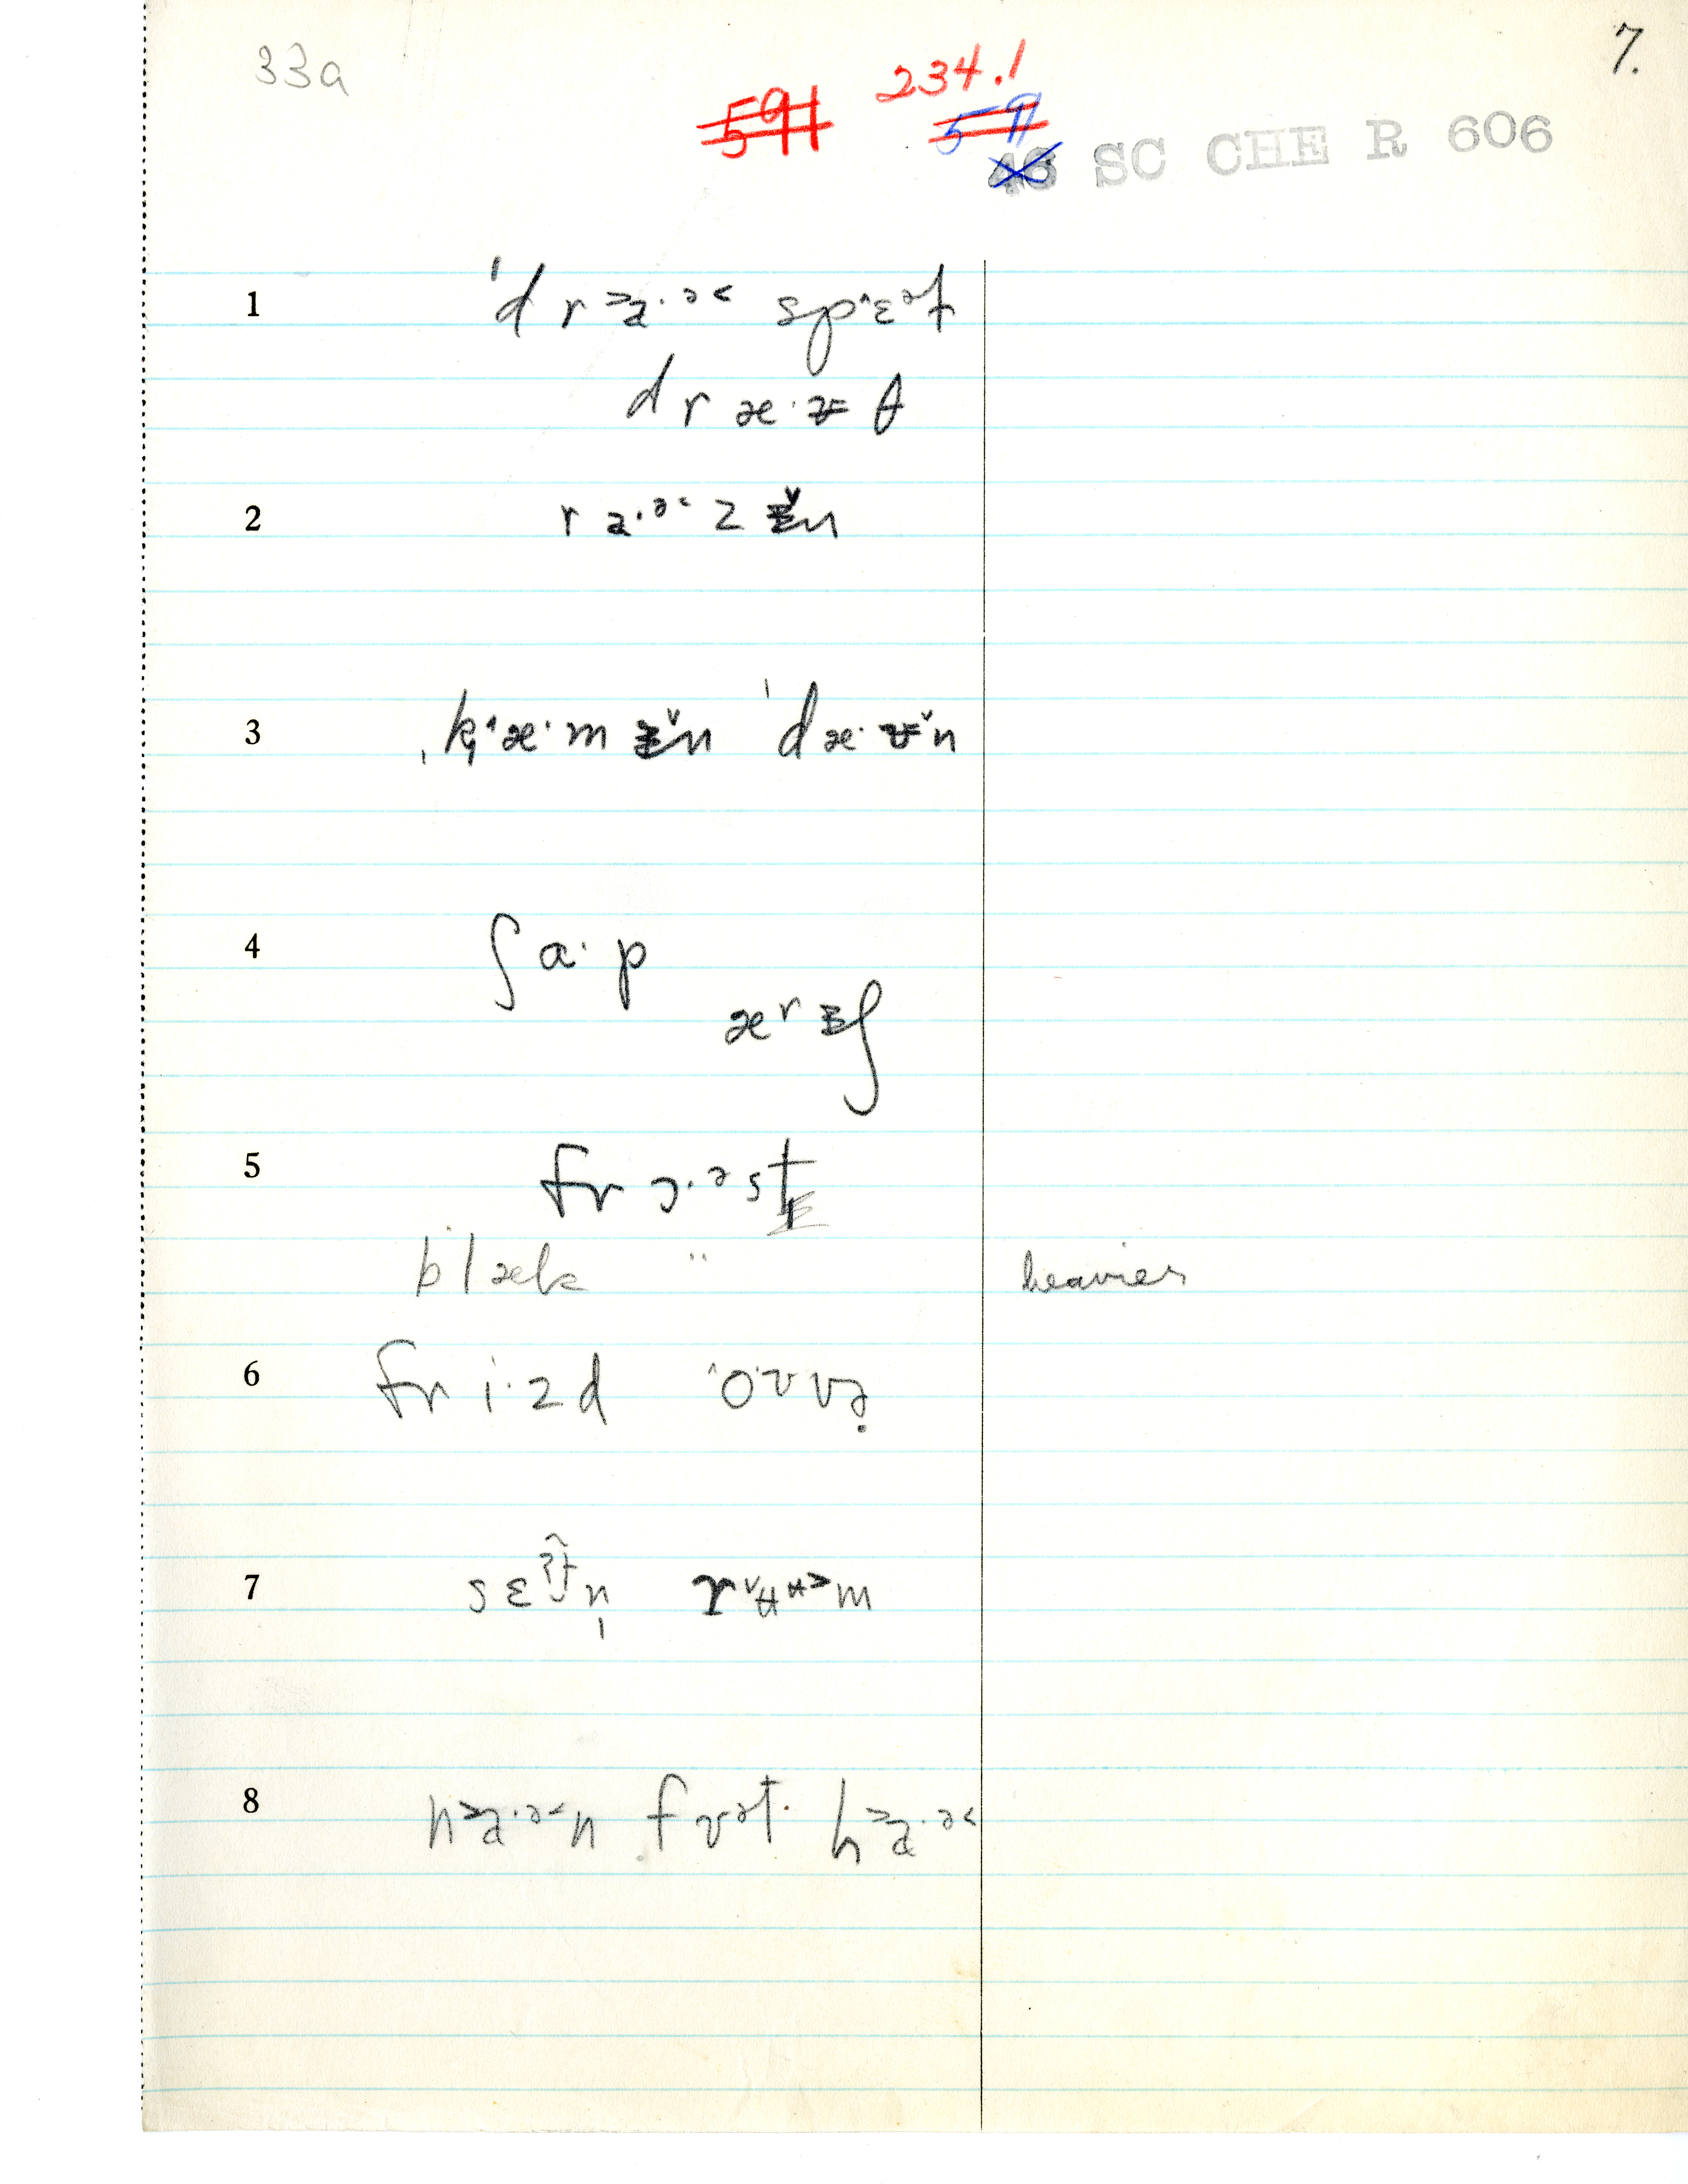 33a
7.
591 234.1
571
46 SC CHE R 606
1 ˈd r ˃a·ə˂ spˆɛət
d r æ·ᵾ θ
2 r a·ə˂ z ᵻ̌n
3 ˌkˈæ·m ᵻ̌n ˈdæ·ᵾ̌n
4 ʃ ɑ· p
ær ᵻʃ
5 fr ɔ·əst
blæk " heavier
6 fr i·z d ˆoʊvə̣
7 s ɛʔtn̩ rˇʉʉ˃m
8 n˃a·ə˂n f ʊət· h˃a·ə˂